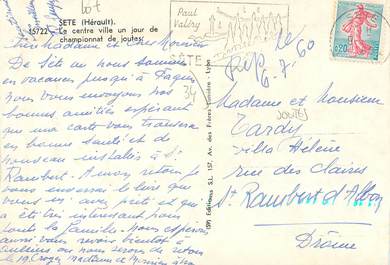 Lot
SETE (Hérault).
15722 - Le centre ville un jour de
championnat de joutes.
Paul
Valéry
Rép le
6.7.60
0,20
34
JOUTES
Chère Madame et Cher Monsieur
De Sète où nous sommes
en vacances jusqu'à Pâques
nous vous envoyons nos
bonnes amitiés espérant
que ma carte vous trouvera
en bonne santé et de
nouveau installés à St
Rambert. A mon retour je
vous enverrai le livre que
vous m'avez prêté et qui
a été très intéressant pour
toute la famille. Nous espérons
aussi vous revoir bientôt
nous serons de retour
le 19. Croyez Madame et Monsieur à
Madame et Monsieur
Tardy
Villa Hélène
rue des Claires
St Rambert d'Albon
Drôme
Editions S.L. 157, Av. des Frères Lumière - Lyon